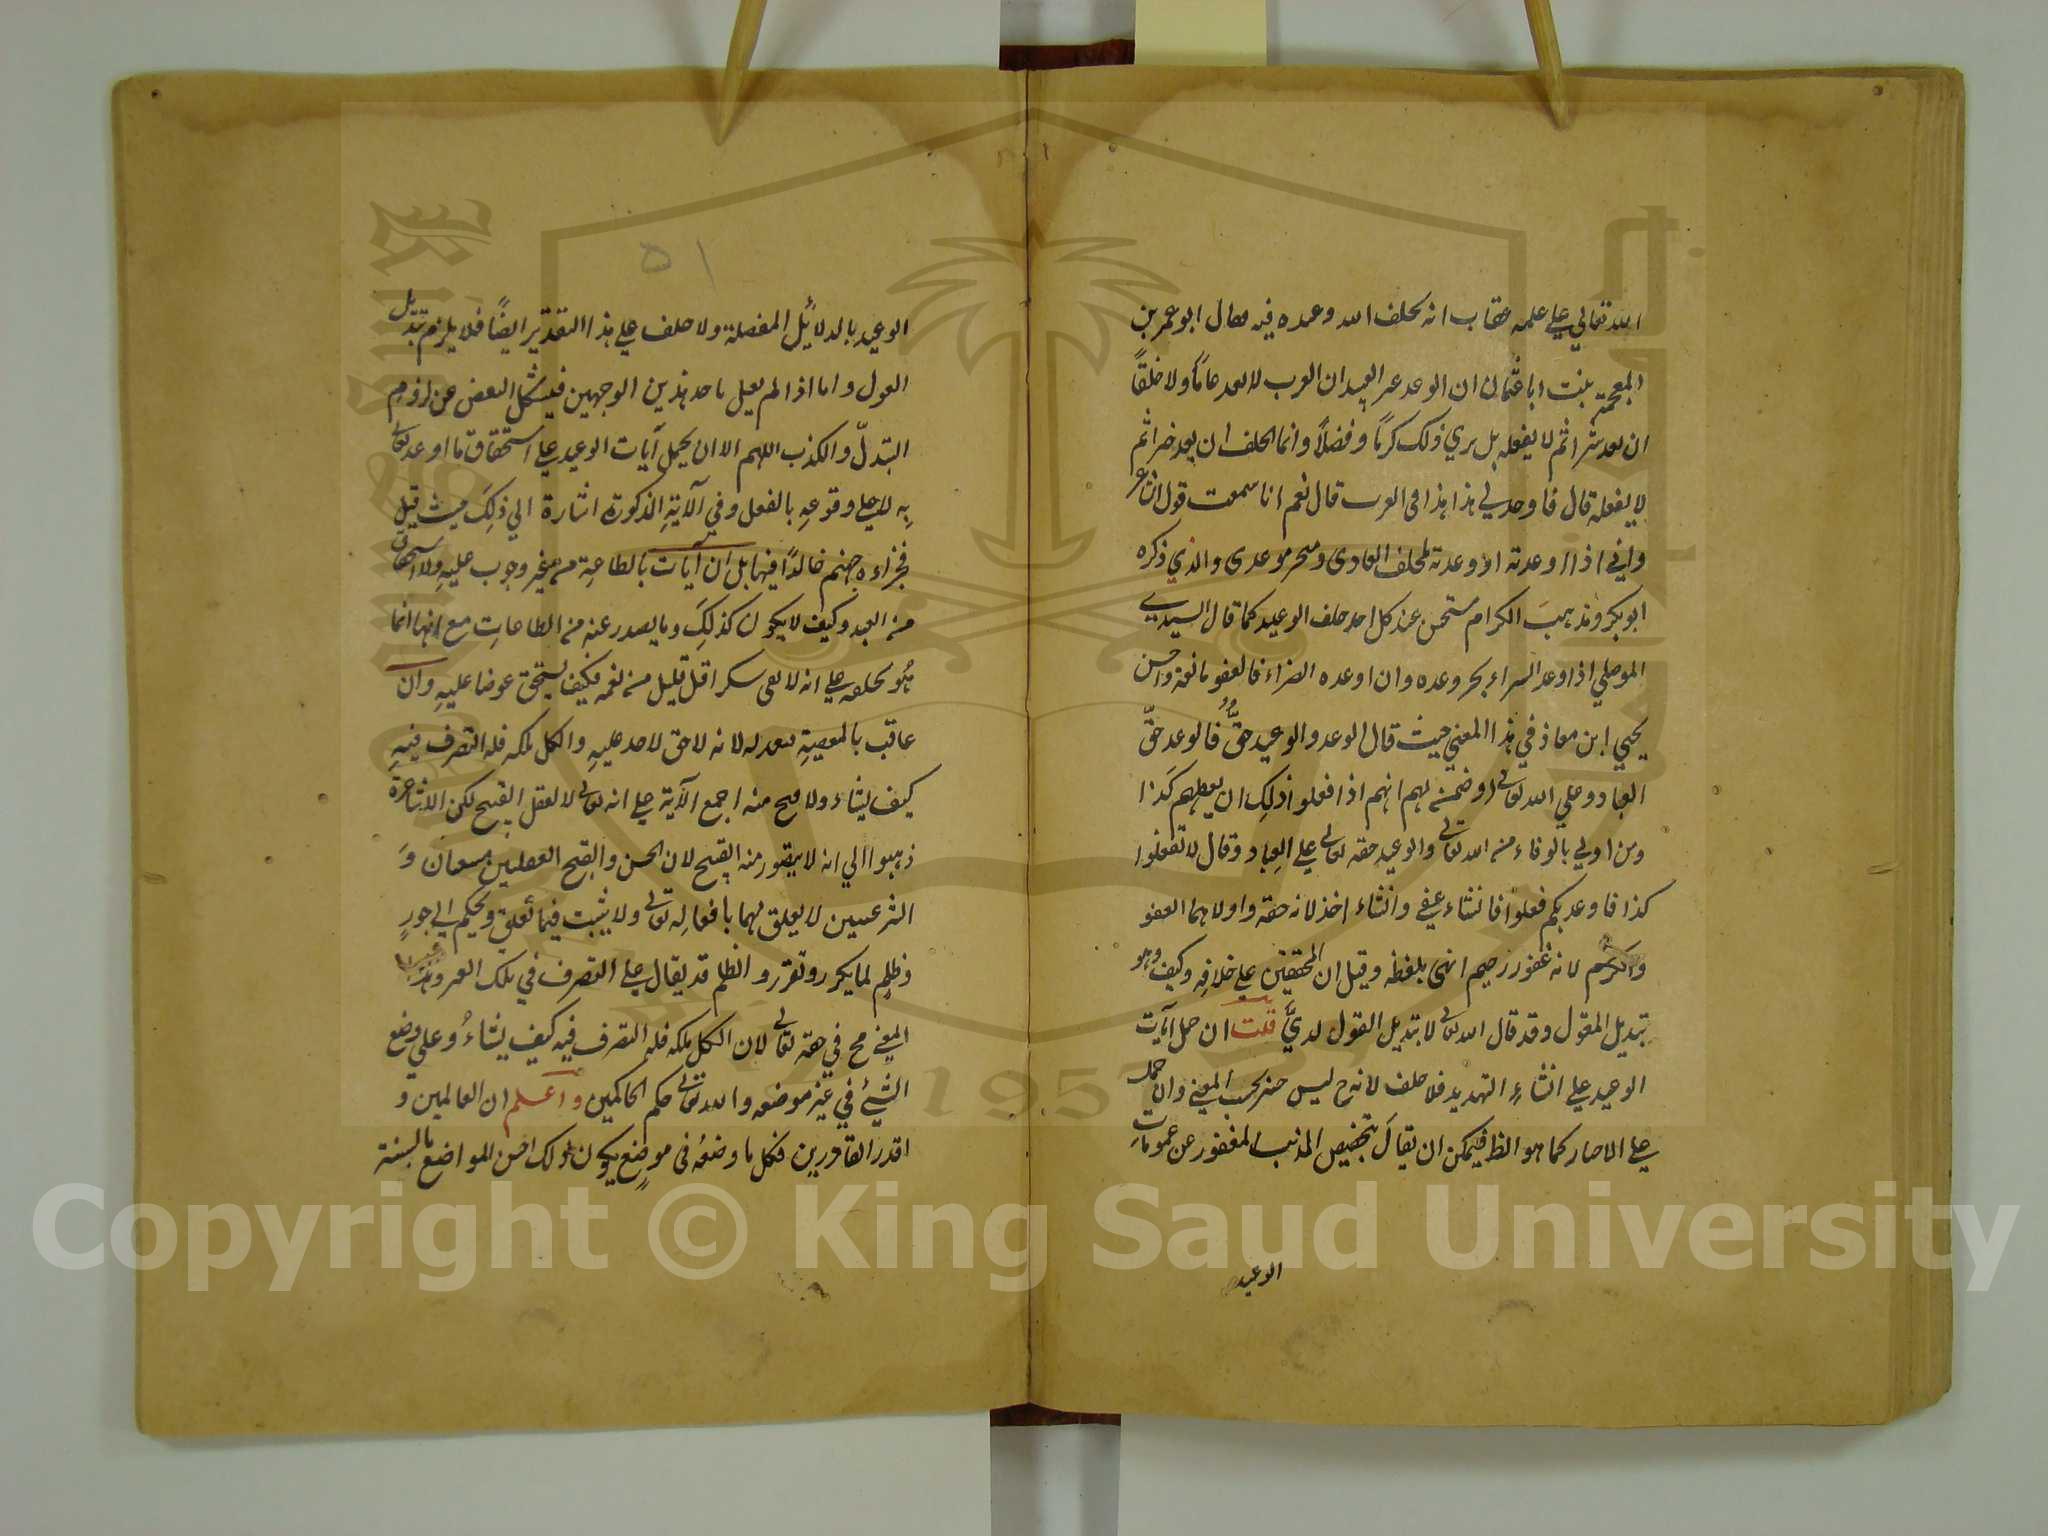 الله تعالي علي علمه عقاب انه يخلف الله وعده فيه فقال ابو عمر بن
العجمة بنت ابا عثمان ان الوعد غير العيد ان العرب لا يعد عارًا ولا خلفًا
ان يعد شرا ثم لا يفعله بل يري ذلك كرمًا وفضلًا وانما الخلف ان يعد خيرا ثم
لا يفعله قال فاوحد لي هذا في العرب قال نعم انا سمعت قول الشاعر
واني اذا اوعدته او وعدته لمخلف ايعادي ومنجز موعدي والذي ذكره
ابو بكر ومذهب الكرام مستحسن عند كل احد خلف الوعيد كما قال السيدي
الموصلي اذا وعد السراء نجز وعده وان اوعد الضراء فالعفو مانعه واحسن
يحيي ابن معاذ في هذا المعني حيث قال الوعد والوعيد حقٌّ فالوعد حقّ
العباد علي الله تعالي اذ ضمن لهم انهم اذا فعلوا ذلك ان يعطيهم كذا
ومن اولي بالوفاء من الله تعالي والوعيد حقه تعالي علي العباد وقال لا تفعلوا
كذا فاوعدبكم فعلوا فان شاء عفي وان شاء اخذ لانه حقه واولاهما العفو
والكرم لانه غفور رحيم انتهى بلفظه وقيل ان المحققين علي خلافه وكيف وهو
تبديل القول وقد قال الله تعالي لا تبديل القول لديَّ قلت ان حمل آيات
الوعيد علي انشاء التهديد فلا خلف لانه ح ليس خبر بحسب المعني وان حمل
علي الاخبار كما هو الظ فيمكن ان يقال بتخصيص المذنب المغفور عن عمومات
الوعيد
٥١
الوعيد بالدلائل المفصلة ولا خلف علي هذا التقدير ايضًا فلا يلزم تبديل
القول واما اذا لم يعل باحد هذين الوجهين فيشكل البعض عن لزوم
التبدّل والكذب اللهم الا ان يحمل آيات الوعيد علي استحقاق ما اوعد تعالي
به لا علي وقوعه بالفعل وفي الآية المذكورة اشارة الي ذلك حيث قيل
فجزاءه جهنم خالدًا فيها بل ان آيات بالطاعة من غير وجوب عليه ولا استحقاق
من العبد وكيف لا يكون كذلك وما يصدر عنه من الطاعات مع انها انما
هُو بخلقه علي انه لا يفي شكر اقل قليل من نعمه فكيف يستحق عوضا عليه وان
عاقب بالمعصية فبعدله لانه لا حق لاحد عليه والكل ملكه فله التصرف فيه
كيف يشاء ولا قبح منه اجمع الآية علي انه تعالي لا يفعل القبيح لكن الاشاعرة
ذهبوا الي انه لا يتصور منه القبيح لان الحسن والقبح العقليين منتفيان وَ
الشرعيين لا يتعلق بهما بافعاله تعالي ولا يثبت فيما تعلق ويحكم الي جورٍ
وظلم لما يكرر وتقرر والظلم قد يقال علي التصرف في ملك الغير وهذا
المعني مح في حقه تعالي لان الكل ملكه فله التصرف فيه كيف يشاءُ وعلي وضع
الشئ في غير موضعه والله تعالي حكم الحاكمين واعلم ان العالمين و
اقدر القادرين فكل ما وضعه في موضع يكون ذلك احسن المواضع بالنسبة
Copyright © King Saud University
1957